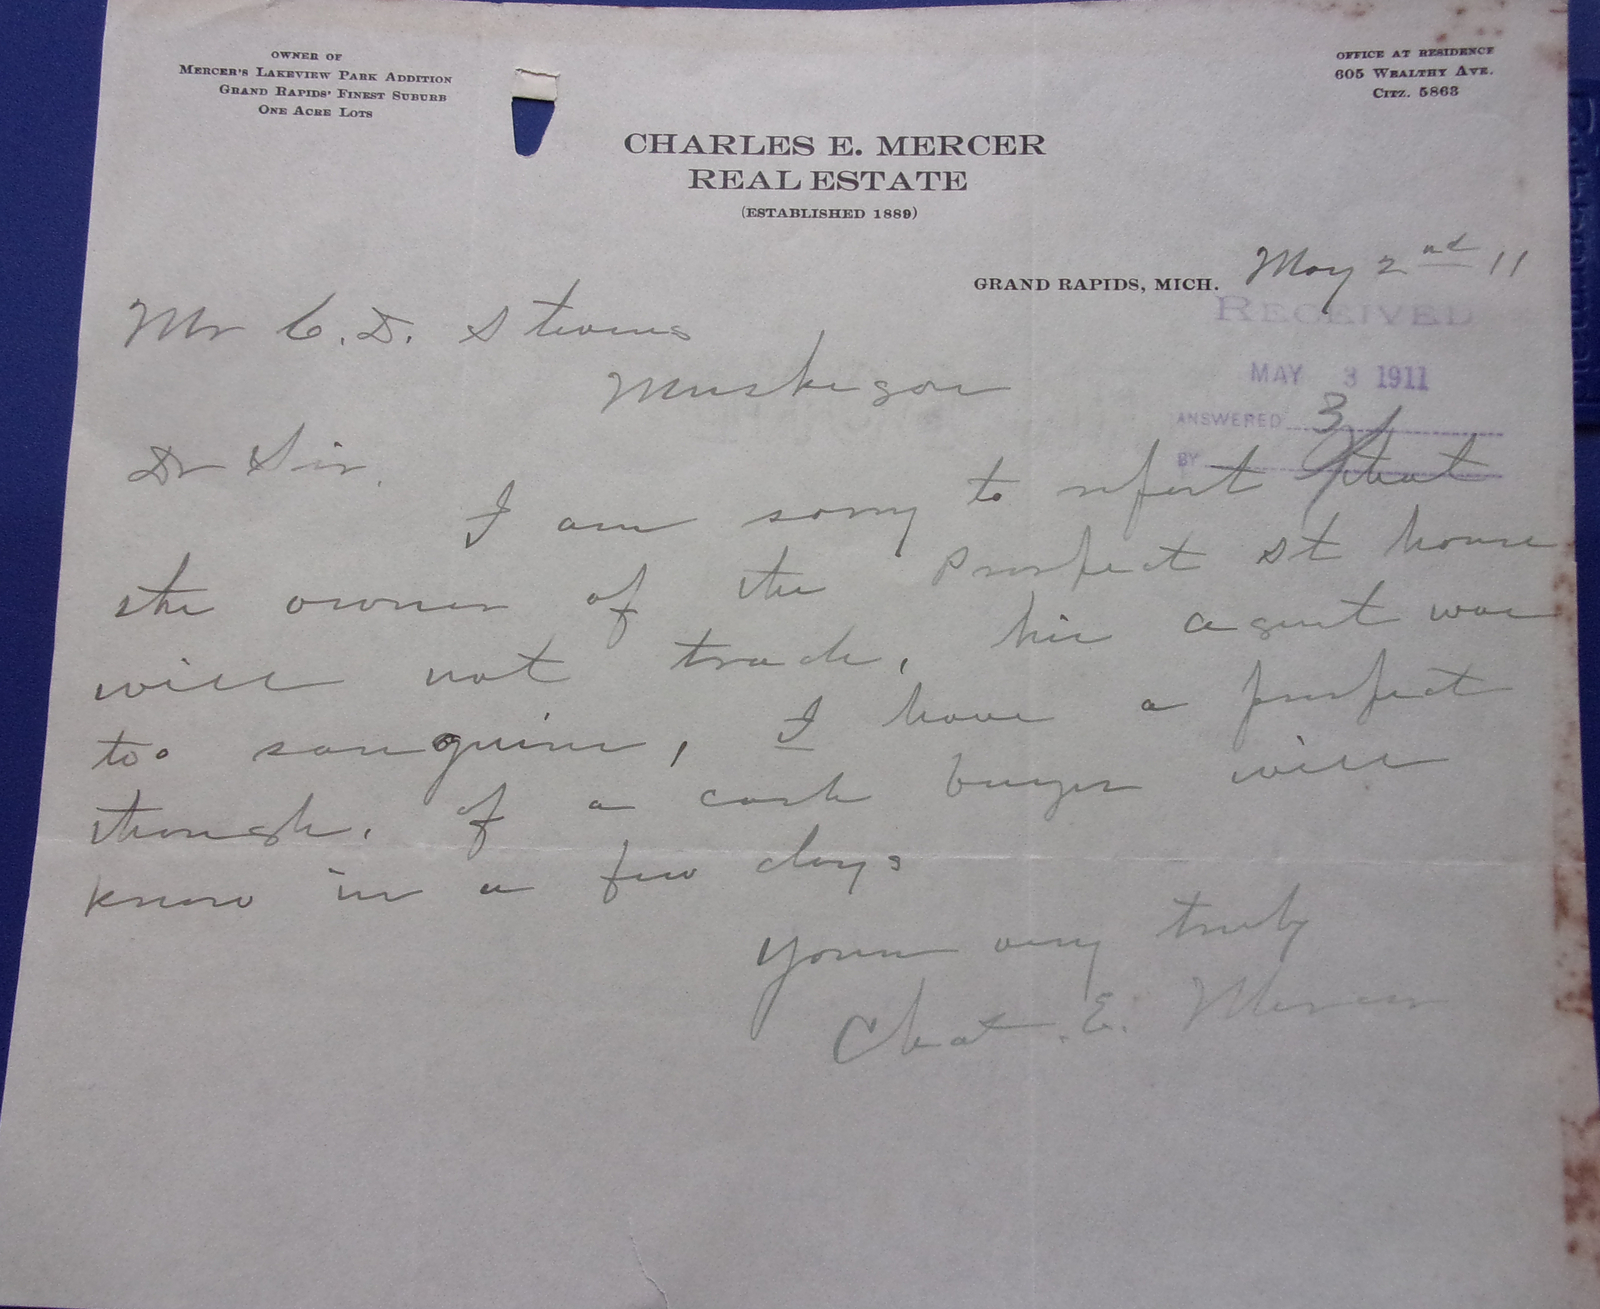 OWNER OF
MERCER'S LAKEVIEW PARK ADDITION
GRAND RAPIDS' FINEST SUBURB
ONE ACRE LOTS
OFFICE AT RESIDENCE
605 WEALTHY AVE.
CITZ. 5863
CHARLES E. MERCER
REAL ESTATE
(ESTABLISHED 1889)
GRAND RAPIDS, MICH. May 2nd 11
RECEIVED
MAY 3 1911
ANSWERED 3
BY
Mr C. D. Stevens
Muskegon
Dr Sir,
I am sorry to report that
the owner of the Prospect St house
will not trade, his agent was
too sanguine, I have a prospect
though, of a cash buyer will
know in a few days
Yours very truly
Chas. E. Mercer